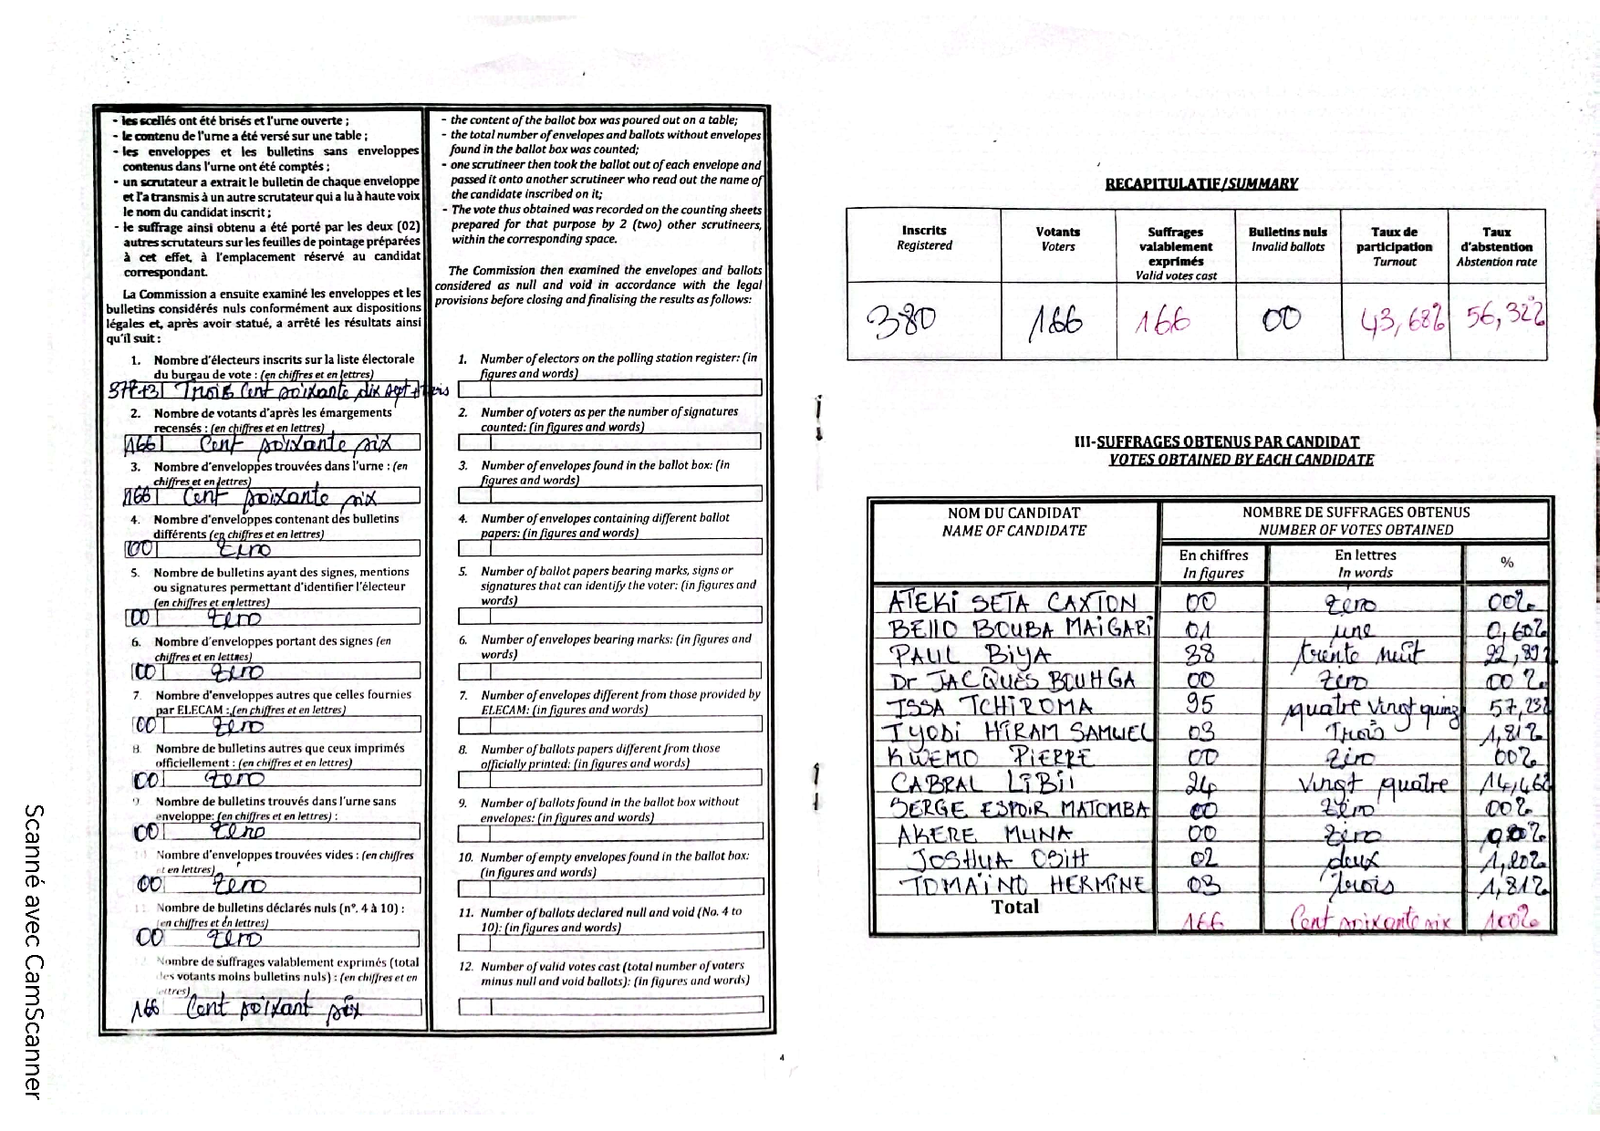 - les scellés ont été brisés et l'urne ouverte ;
- le contenu de l'urne a été versé sur une table ;
- les enveloppes et les bulletins sans enveloppes
contenus dans l'urne ont été comptés ;
- un scrutateur a extrait le bulletin de chaque enveloppe
et l'a transmis à un autre scrutateur qui a lu à haute voix
le nom du candidat inscrit ;
- le suffrage ainsi obtenu a été porté par les deux (02)
autres scrutateurs sur les feuilles de pointage préparées
à cet effet, à l'emplacement réservé au candidat
correspondant.
La Commission a ensuite examiné les enveloppes et les
bulletins considérés nuls conformément aux dispositions
légales et, après avoir statué, a arrêté les résultats ainsi
qu'il suit :
1. Nombre d'électeurs inscrits sur la liste électorale
du bureau de vote : (en chiffres et en lettres)
377+3 Trois Cent soixante dix sept + trois
2. Nombre de votants d'après les émargements
recensés : (en chiffres et en lettres)
166 Cent soixante six
3. Nombre d'enveloppes trouvées dans l'urne : (en
chiffres et en lettres)
166 Cent soixante six
4. Nombre d'enveloppes contenant des bulletins
différents (en chiffres et en lettres)
00 Zero
5. Nombre de bulletins ayant des signes, mentions
ou signatures permettant d'identifier l'électeur
(en chiffres et en lettres)
00 Zero
6. Nombre d'enveloppes portant des signes (en
chiffres et en lettres)
00 Zero
7. Nombre d'enveloppes autres que celles fournies
par ELECAM : (en chiffres et en lettres)
00 Zero
8. Nombre de bulletins autres que ceux imprimés
officiellement : (en chiffres et en lettres)
00 Zero
9. Nombre de bulletins trouvés dans l'urne sans
enveloppe: (en chiffres et en lettres) :
00 Zero
Nombre d'enveloppes trouvées vides : (en chiffres
et en lettres)
00 Zero
Nombre de bulletins déclarés nuls (n°. 4 à 10) :
(en chiffres et en lettres)
00 Zero
Nombre de suffrages valablement exprimés (total
des votants moins bulletins nuls) : (en chiffres et en
lettres)
166 Cent soixant six
- the content of the ballot box was poured out on a table;
- the total number of envelopes and ballots without envelopes
found in the ballot box was counted;
- one scrutineer then took the ballot out of each envelope and
passed it onto another scrutineer who read out the name of
the candidate inscribed on it;
- The vote thus obtained was recorded on the counting sheets
prepared for that purpose by 2 (two) other scrutineers,
within the corresponding space.
The Commission then examined the envelopes and ballots
considered as null and void in accordance with the legal
provisions before closing and finalising the results as follows:
1. Number of electors on the polling station register: (in
figures and words)
2. Number of voters as per the number of signatures
counted: (in figures and words)
3. Number of envelopes found in the ballot box: (in
figures and words)
4. Number of envelopes containing different ballot
papers: (in figures and words)
5. Number of ballot papers bearing marks, signs or
signatures that can identify the voter: (in figures and
words)
6. Number of envelopes bearing marks: (in figures and
words)
7. Number of envelopes different from those provided by
ELECAM: (in figures and words)
8. Number of ballots papers different from those
officially printed: (in figures and words)
9. Number of ballots found in the ballot box without
envelopes: (in figures and words)
10. Number of empty envelopes found in the ballot box:
(in figures and words)
11. Number of ballots declared null and void (No. 4 to
10): (in figures and words)
12. Number of valid votes cast (total number of voters
minus null and void ballots): (in figures and words)
4
RECAPITULATIF/SUMMARY
Inscrits Registered
Votants Voters
Suffrages valablement exprimés Valid votes cast
Bulletins nuls Invalid ballots
Taux de participation Turnout
Taux d'abstention Abstention rate
380 166 166 00 43,68% 56,32%
III-SUFFRAGES OBTENUS PAR CANDIDAT
VOTES OBTAINED BY EACH CANDIDATE
NOM DU CANDIDAT NOMBRE DE SUFFRAGES OBTENUS
NAME OF CANDIDATE NUMBER OF VOTES OBTAINED
En chiffres En lettres %
In figures In words
ATEKI SETA CAXTON 00 Zero 00%
BELLO BOUBA MAIGARI 01 une 0,60%
PAUL BIYA 38 trente huit 22,89%
Dr JACQUES BOUHGA 00 Zero 00%
ISSA TCHIROMA 95 quatre vingt quinz 57,23%
IYODI HIRAM SAMUEL 03 Trois 1,81%
KWEMO PIERRE 00 Zero 00%
CABRAL LIBII 24 Vingt quatre 14,46%
SERGE ESPOIR MATOMBA 00 Zero 00%
AKERE MUNA 00 Zero 00%
JOSHUA OSIH 02 deux 1,20%
TOMAINO HERMINE 03 trois 1,81%
Total 166 Cent soixante six 100%
Scanné avec CamScanner